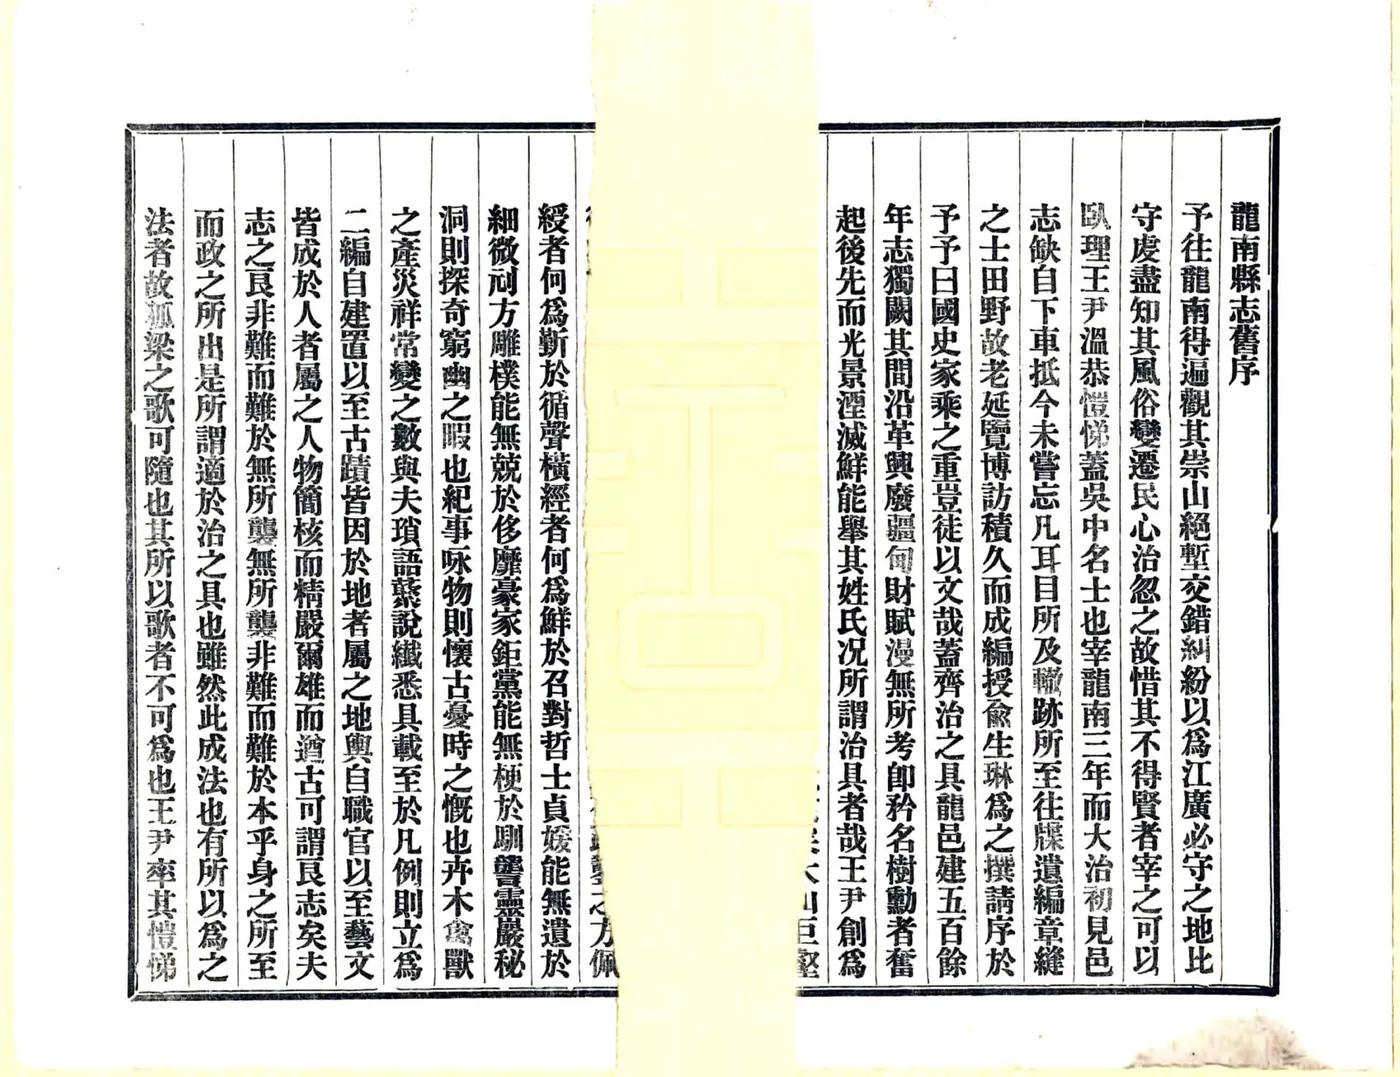 龍南縣志舊序
予往龍南得遍觀其崇山絕塹交錯糾紛以爲江廣必守之地比
守虔盡知其風俗變遷民心治忽之故惜其不得賢者宰之可以
臥理王尹溫恭愷悌蓋吳中名士也宰龍南三年而大治初見邑
志缺自下車抵今未嘗忘凡耳目所及轍跡所至往牒遺編章縫
之士田野故老延覽博訪積久而成編授兪生琳爲之撰請序於
予予曰國史家乘之重豈徒以文哉蓋齊治之具龍邑建五百餘
年志獨闕其間沿革興廢疆甸財賦漫無所考卽矜名樹勳者奮
起後先而光景湮滅鮮能舉其姓氏况所謂治具者哉王尹創爲
大山巨壑
之方佩
綬者何爲斳於循聲橫經者何爲鮮於召對哲士貞媛能無遺於
細微刓方雕樸能無兢於侈靡豪家鉅黨能無梗於馴讋靈巖秘
洞則探奇窮幽之暇也紀事咏物則懷古憂時之慨也卉木禽獸
之產災祥常變之數與夫瑣語蘩說纖悉具載至於凡例則立爲
二編自建置以至古蹟皆因於地者屬之地輿自職官以至藝文
皆成於人者屬之人物簡核而精嚴爾雄而遒古可謂良志矣夫
志之良非難而難於無所襲無所襲非難而難於本乎身之所至
而政之所出是所謂適於治之具也雖然此成法也有所以爲之
法者故瓠梁之歌可隨也其所以歌者不可爲也王尹率其愷悌